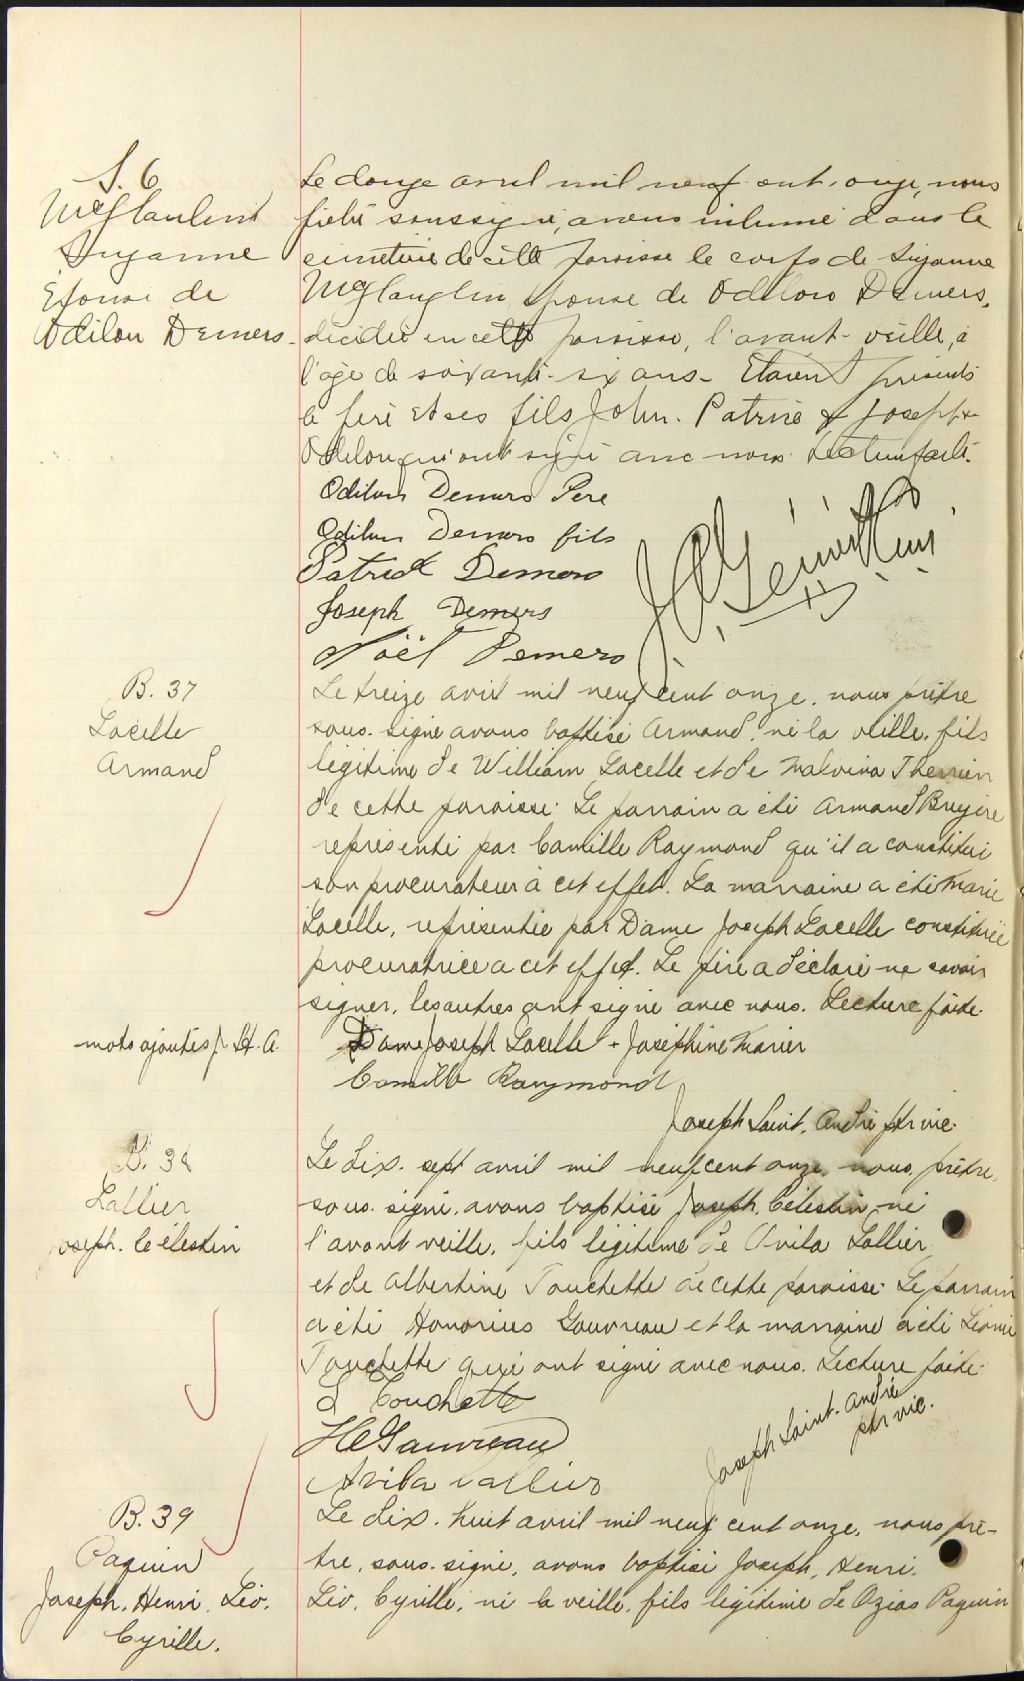 S. 6
McGlaulin
Suzanne
Epouse de
Odilon Demers
Le douze avril mil neuf cent onze, nous
prêtre soussigné, avons inhumé dans le
cimetière de cette paroisse le corps de Suzanne
McGlauglin épouse de Odilon Demers,
décédée en cette paroisse, l'avant-veille, à
l'age de soixante-six ans. Etaient présents
le père et ses fils John. Patrick & Joseph &
Odilon qui ont signé avec nous. Lecture faite.
Odilon Demers Pere
Odilon Demers fils
Patrick Demers
Joseph Demers
Noël Demers
B. 37
Lacelle
Armand
Le treize avril mil neuf cent onze, nous prêtre
sous-signé avons baptisé Armand, né la veille, fils
légitime de William Lacelle et de Malvina Therrien
de cette paroisse. Le parrain a été Armand Bruyère
représenté par Camille Raymond qu'il a constitué
son procurateur à cet effet. La marraine a été Marie
Lacelle, représentée par Dame Joseph Lacelle constituée
procuratrice a cet effet. Le père a déclaré ne savoir
signer, les autres ont signé avec nous. Lecture faite.
mots ajoutés J. St. A.
Dame Joseph Lacelle - Joséphine Marier
Camille Raymond
Joseph Saint-André ptr vic.
B. 38
Lallier
Joseph. Célestin
Le dix-sept avril mil neuf cent onze, nous, prêtre,
sous-signé, avons baptisé Joseph, Célestin, né
l'avant veille, fils légitime de Avila Lallier
et de Albertine Touchette de cette paroisse. Le parrain
a été Honorius Gauvreau et la marraine a été Léonie
Touchette qui ont signé avec nous. Lecture faite.
L Touchette
H Gauvreau
Avila Lallier
Joseph Saint-André
ptr vic.
B. 39
Paquin
Joseph. Henri. Léo.
Cyrille.
Le dix-huit avril mil neuf cent onze, nous prê-
tre, sous-signé, avons baptisé Joseph, Henri,
Léo, Cyrille, né la veille, fils légitime de Ozias Paquin